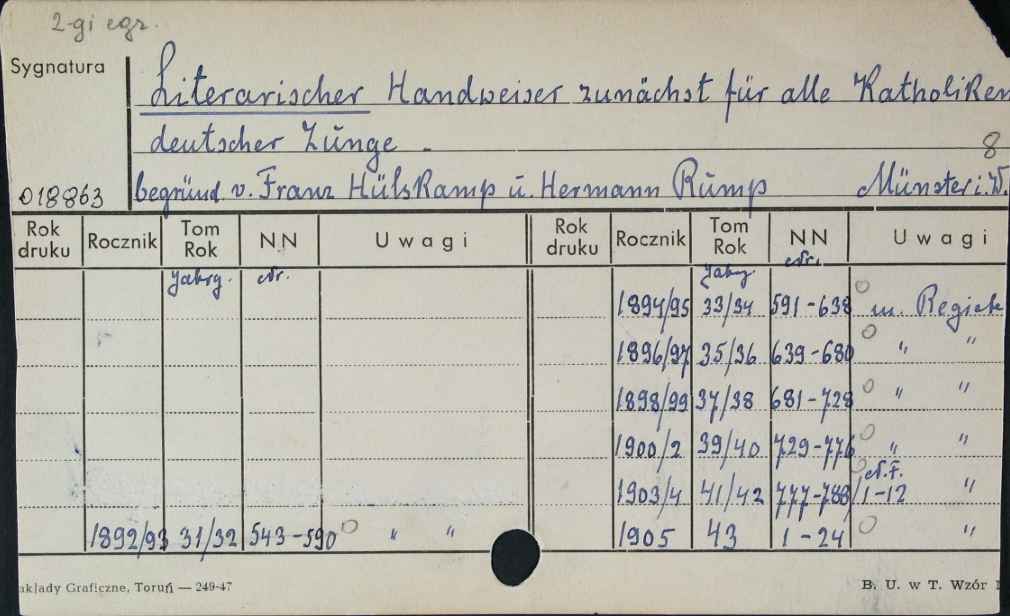 2-gi egz.
Sygnatura
Literarischer Handweiser zunächst für alle Katholiken
deutscher Zunge.
8
018863 begründ. v. Franz Hülskamp u. Hermann Rump Münster i. W.
Rok druku Rocznik Tom Rok NN Uwagi Rok druku Rocznik Tom Rok NN Uwagi
Jahrg. Nr. Jahrg. Nr.
1894/95 33/34 591-638 m. Registe
1896/97 35/36 639-680 " "
1898/99 37/38 681-728 " "
1900/2 39/40 729-776 " "
N.F.
1903/4 41/42 777-788/1-12 "
1892/93 31/32 543-590 " " 1905 43 1-24 "
akłady Graficzne, Toruń — 249-47 B. U. w T. Wzór 1